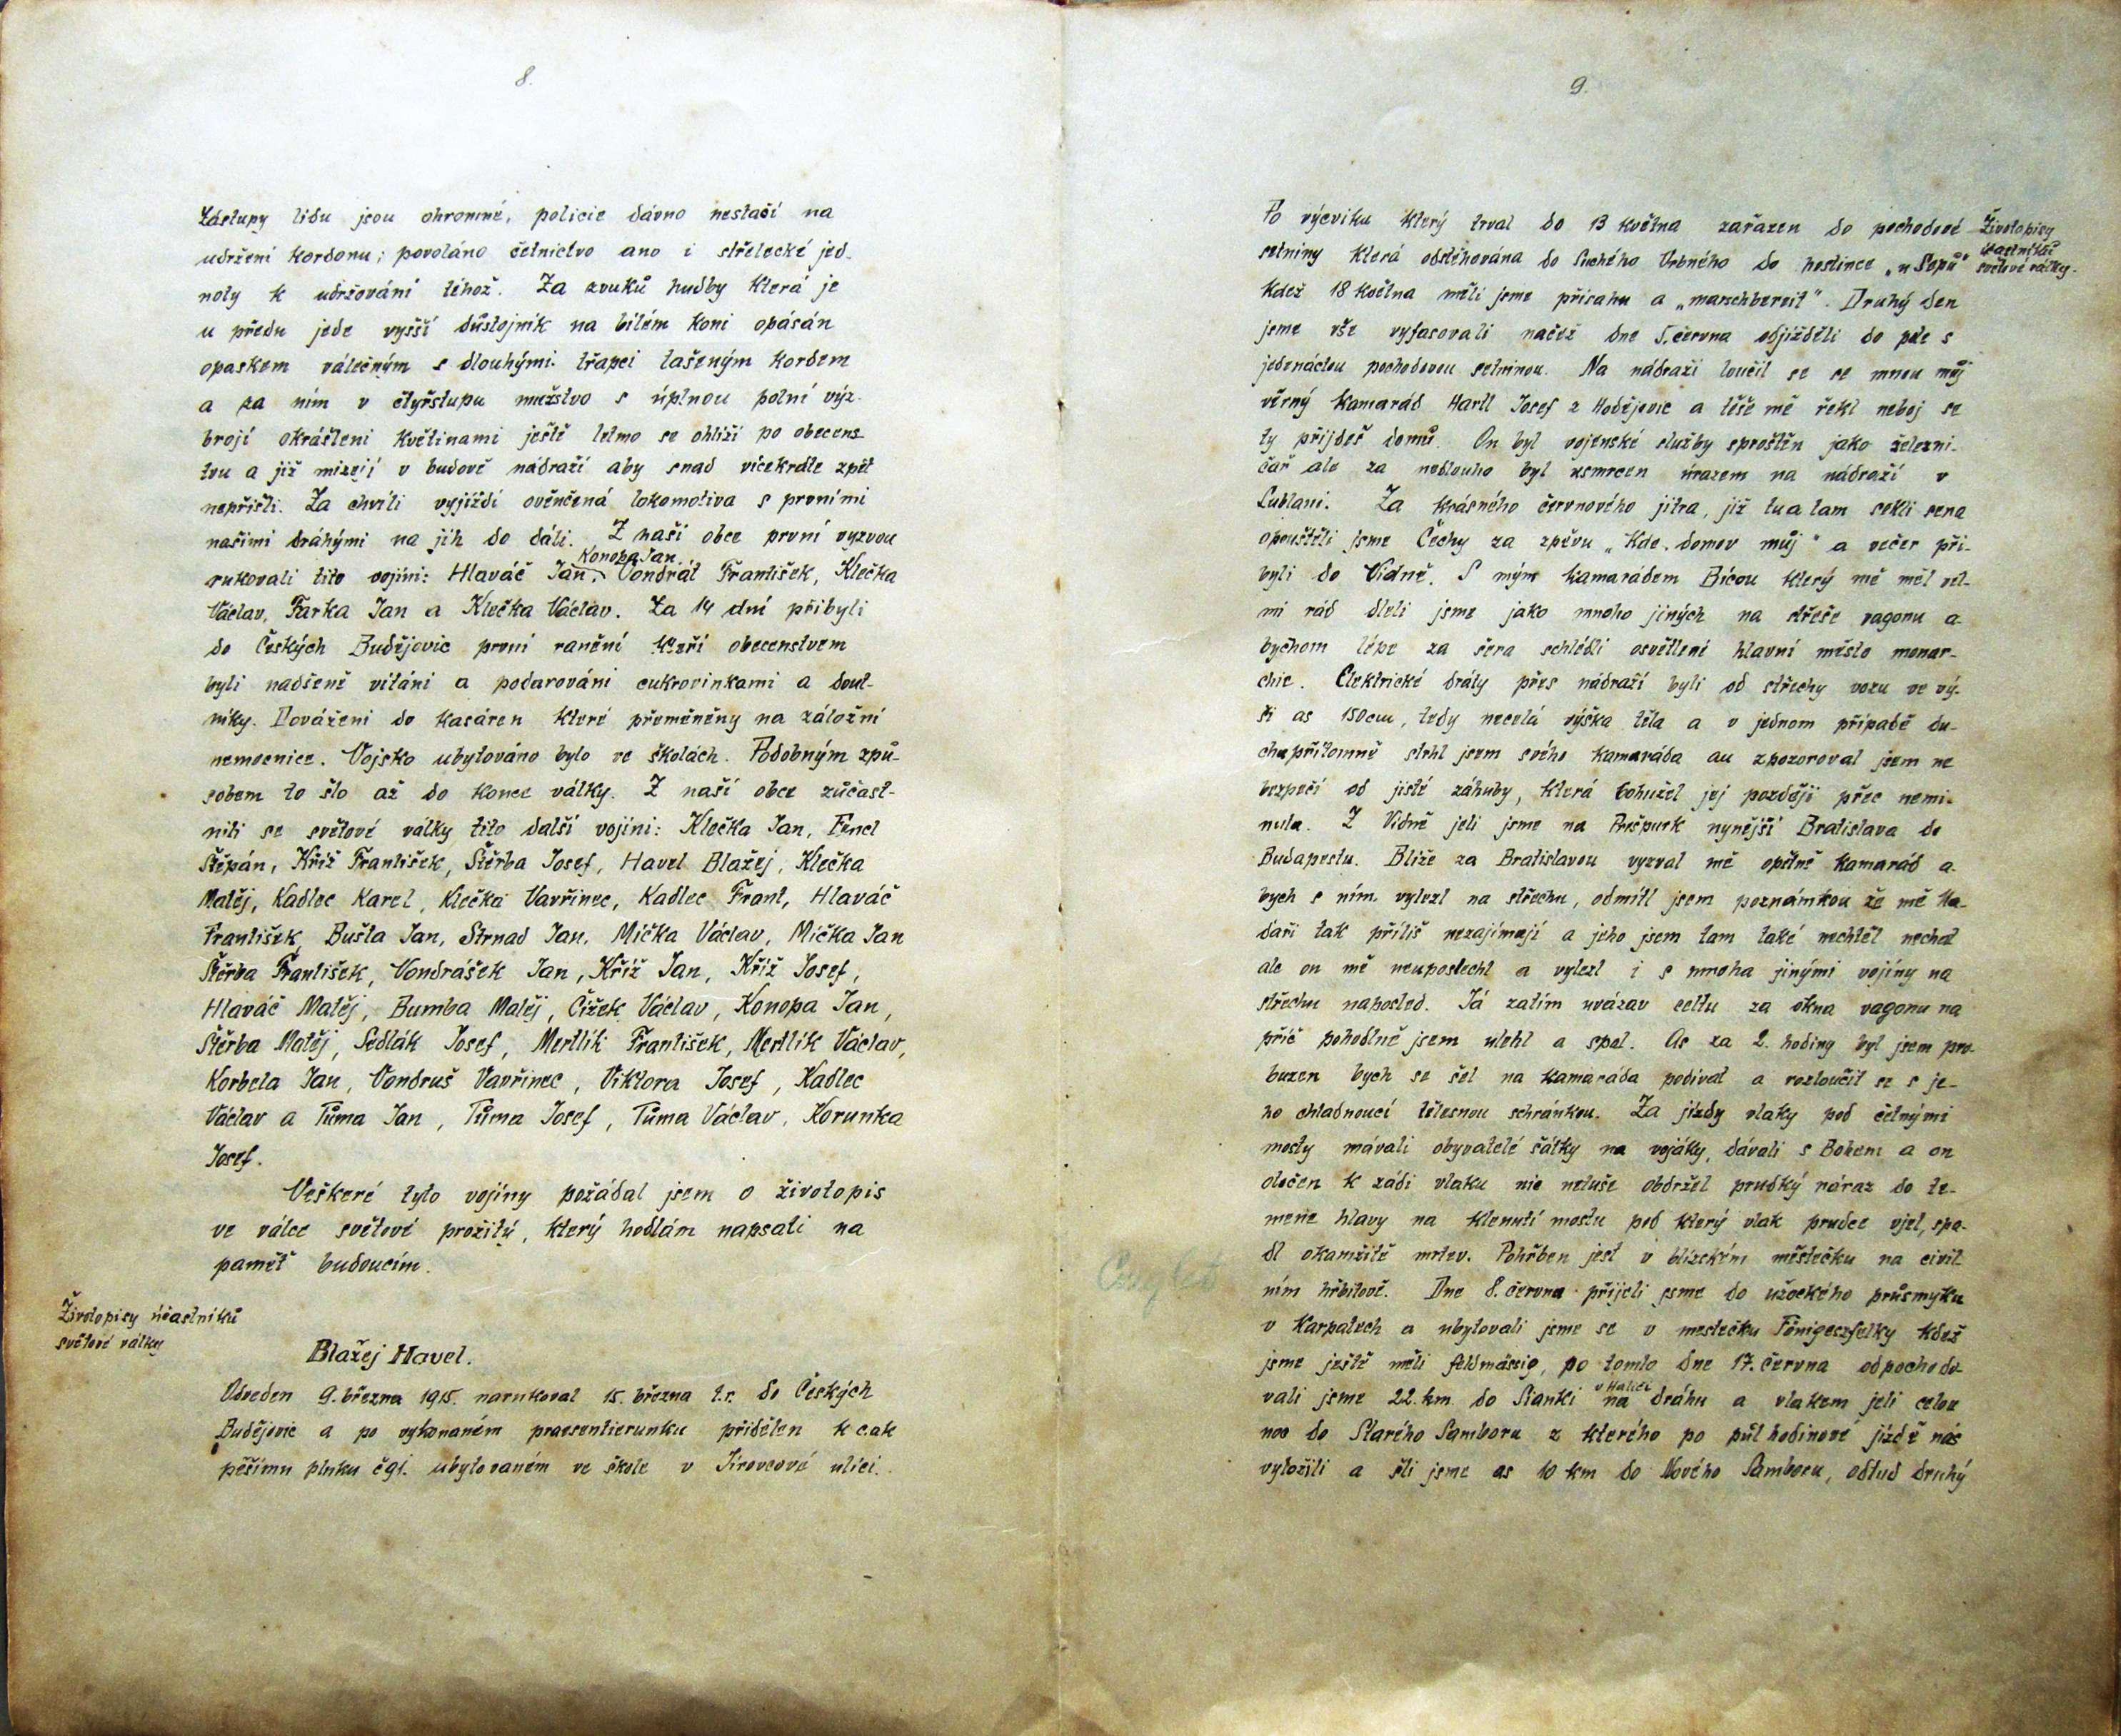 8.
Zástupy lidu jsou ohromné, policie dávno nestačí na
udržení kordonu; povoláno četnictvo ano i střelecké jed-
noty k udržování téhož. Za zvuků hudby která je
u předu jede vyšší důstojník na bílém koni opásán
opaskem válečným s dlouhými třapci tašeným kordem
a za ním v čtyřstupu mužstvo s úplnou polní výz-
brojí okrášleni květinami ještě letmo se ohlíží po obecens-
tvu a již mizejí v budově nádraží aby snad vícekráte zpět
nepřišli. Za chvíli vyjíždí ověnčená lokomotiva s prvními
našimi drahými na jih do dáli. Z naší obce první vyzvou
Konopa Jan.
rukovali tito vojíni: Hlaváč Jan, Vondrát František, Klečka
Václav, Farka Jan a Klečka Václav. Za 14 dní přibyli
do Českých Budějovic první ranění kteří obecenstvem
byli nadšeně vítáni a podarováni cukrovinkami a dout-
níky. Dováženi do kasáren které přeměněny na záložní
nemocnice. Vojsko ubytováno bylo ve školách. Podobným způ-
sobem to šlo až do konce války. Z naší obce zúčast-
nili se světové války tito další vojíni: Klečka Jan, Fencl
Štěpán, Kříž František, Štěrba Josef, Havel Blažej, Klečka
Matěj, Kadlec Karel, Klečka Vavřinec, Kadlec Frant, Hlaváč
František, Bušta Jan, Strnad Jan, Mička Václav, Mička Jan
Štěrba František, Vondrášek Jan, Kříž Jan, Kříž Josef,
Hlaváč Matěj, Bumba Matěj, Čížek Václav, Konopa Jan,
Štěrba Matěj, Sedlák Josef, Mertlík František, Mertlík Václav,
Korbela Jan, Vondruš Vavřinec, Viktora Josef, Kadlec
Václav a Tůma Jan, Tůma Josef, Tůma Václav, Korunka
Josef.
Veškeré tyto vojíny požádal jsem o životopis
ve válce světové prožitý, který hodlám napsati na
paměť budoucím.
Životopisy účastníků
světové války
Blažej Havel.
Odveden 9. března 1915. narukoval 15. března t.r. do Českých
Budějovic a po vykonaném praesentierunku přidělen k c.a k
pěšímu pluku č 91. ubytovaném ve škole v Jírovcové ulici.
9.
Životopisy
účastníků
světové války.
Po výcviku který trval do 13 května zařazen do pochodové
setniny která odstěhována do Suchého Vrbného do hostince „u Sepů"
kdež 18 května měli jsme přísahu a „marschbereit". Druhý den
jsme vše vyfasovali načež dne 5. června odjížděli do pole s
jedenáctou pochodovou setninou. Na nádraží loučil se se mnou můj
věrný kamarád Hartl Josef z Hodějovic a těše mě řekl neboj se
ty přijdeš domů. On byl vojenské služby sproštěn jako železni-
čář ale za nedlouho byl usmrcen úrazem na nádraží v
Lublani. Za krásného červnového jitra, již tu a tam sekli sena
opouštěli jsme Čechy za zpěvu „Kde domov můj" a večer při-
byli do Vídně. S mým kamarádem Bícou který mě měl vel-
mi rád dleli jsme jako mnoho jiných na střeše vagonu a-
bychom lépe za šera schlédli osvětlené hlavní město monar-
chie. Elektrické dráty přes nádraží byli od střechy vozu ve vý-
ši as 150cm, tedy necelá výška těla a v jednom případě du-
chapřítomně strhl jsem svého kamaráda an zpozoroval jsem ne
bezpečí od jisté záhuby, která bohužel jej později přec nemi-
nula. Z Vídně jeli jsme na Prešpurk nynější Bratislava do
Budapestu. Blíže za Bratislavou vyzval mě opětně kamarád a-
bych s ním vylezl na střechu, odmítl jsem poznámkou že mě Ma-
daři tak příliš nezajímají a jeho jsem tam také nechtěl nechat
ale on mě neuposlechl a vylezl i s mnoha jinými vojíny na
střechu nahosted. Já zatím uvázav celtu za okna vagonu na
příč pohodlně jsem ulehl a spal. As za 2. hodiny byl jsem pro-
buzen bych se šel na kamaráda podívat a rozloučit se s je-
ho chladnoucí tělesnou schránkou. Za jízdy vlaky pod četnými
mosty mávali obyvatelé šátky na vojáky, dávali s Bohem a on
otočen k zádi vlaku nic netuše obdržel prudký náraz do te-
mene hlavy na klenutí mostu pod který vlak prudce vjel, spa-
dl okamžitě mrtev. Pohřben jest v blízském městečku na civil-
ním hřbitově. Dne 8. června přijeli jsme do užockého průsmyku
v Karpatech a ubytovali jsme se v mestečku Fénigeszfelky kdež
jsme ještě měli feldmässig, po tomto dne 17. června odpochodo-
v Haliči
vali jsme 22. km do Sianki na dráhu a vlakem jeli celou
noc do Starého Samboru z kterého po půl hodinové jízdě nás
vyložili a šli jsme as 10 km do Nového Samboru, odtud druhý